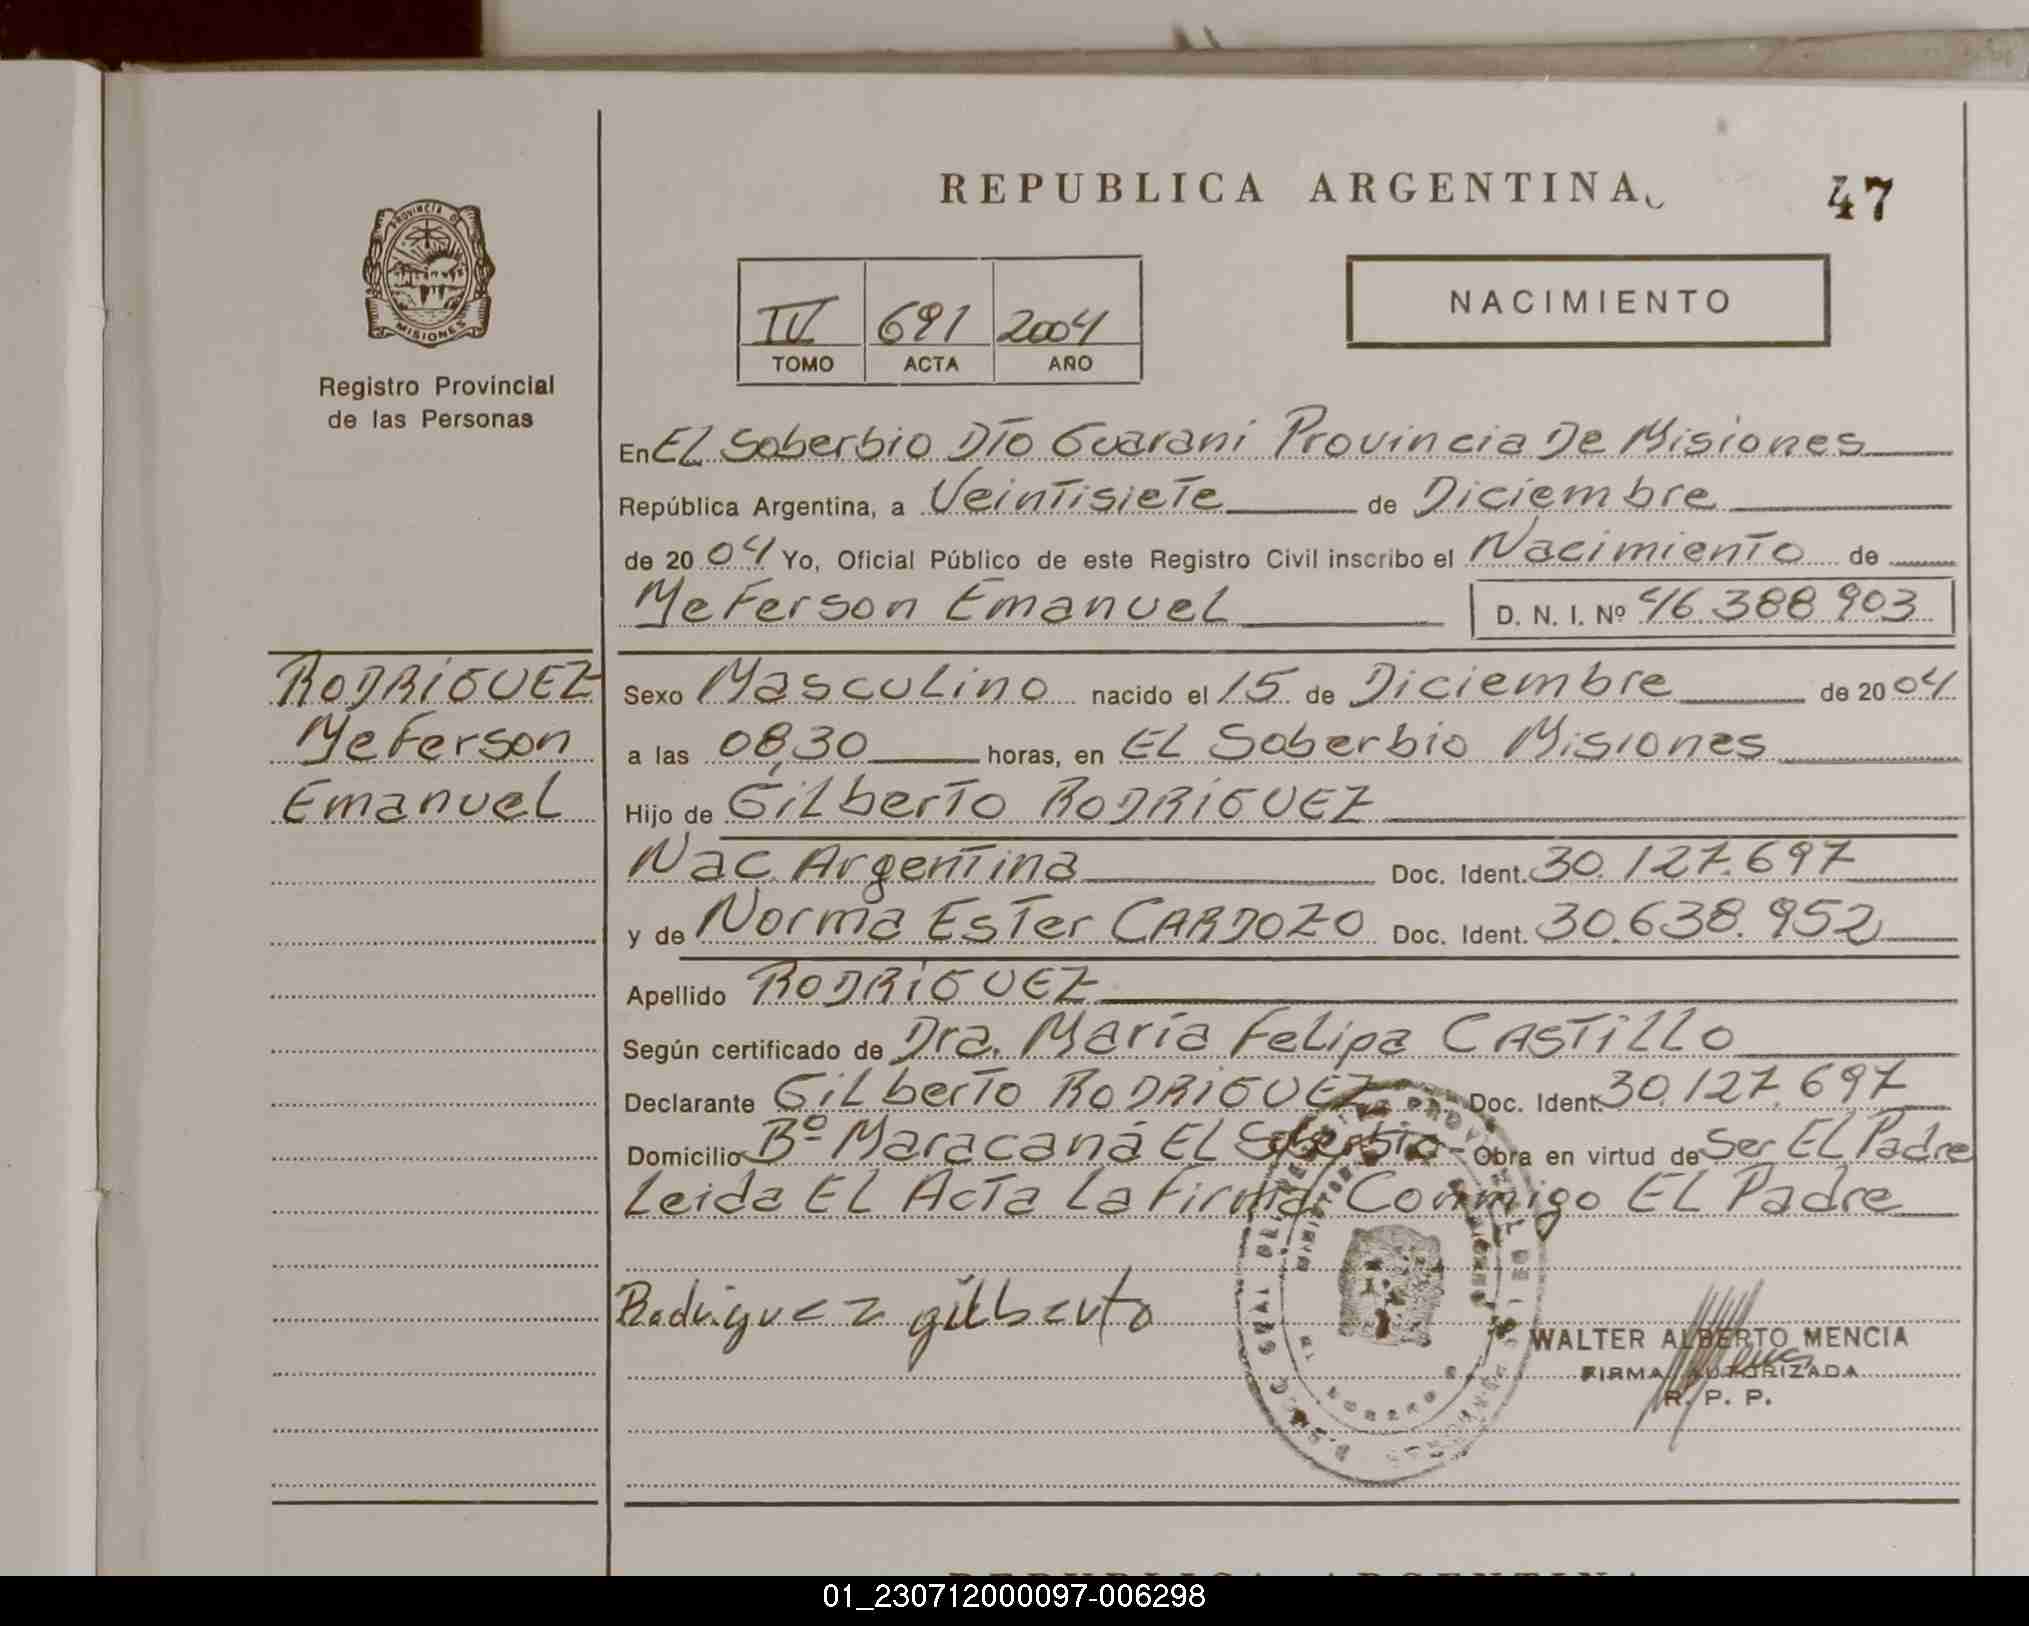 REPUBLICA ARGENTINA
47
PROVINCIA D
MISIONES
Registro Provincial
de las Personas
IV 691 2004
TOMO ACTA AÑO
NACIMIENTO
En EL Soberbio DTo Guarani Provincia De Misiones
República Argentina, a VeinTisieTe de Diciembre
de 20 04 Yo, Oficial Público de este Registro Civil inscribo el NacimienTo de
Yeferson Emanuel
D. N. I. Nº 46.388.903
RODRIGUEZ
Yeferson
Emanuel
Sexo Masculino nacido el 15 de Diciembre de 20 04
a las 08,30 horas, en EL Soberbio Misiones
Hijo de GilberTo RODRIGUEZ
Nac. ArgenTina Doc. Ident. 30.127.697
y de Norma EsTer CARDOZO Doc. Ident. 30.638.952
Apellido RODRIGUEZ
Según certificado de Dra. María Felipa CASTILLO
Declarante GilberTo RODRIGUEZ Doc. Ident. 30.127.697
Domicilio Bº Maracaná EL Soberbio - Obra en virtud de Ser EL Padre
Leida EL AcTa La Firma Conmigo EL Padre
Rodriguez gilberto
WALTER ALBERTO MENCIA
FIRMA AUTORIZADA
R. P. P.
REPUBLICA ARGENTINA
01_230712000097-006298